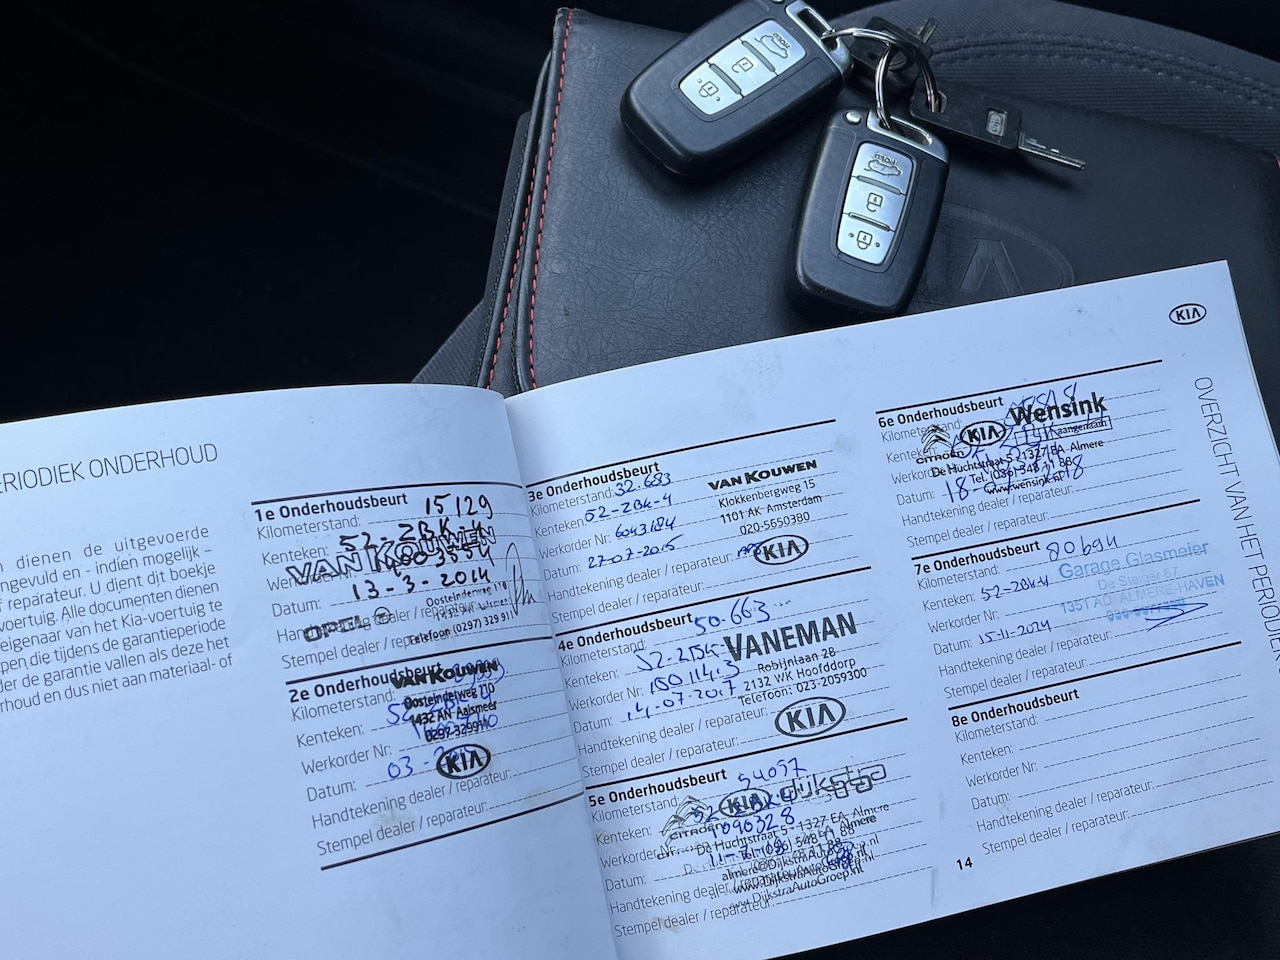 ERIODIEK ONDERHOUD
n dienen de uitgevoerde
ngevuld en - indien mogelijk -
reparateur. U dient dit boekje
voertuig. Alle documenten dienen
eigenaar van het Kia-voertuig te
pen die tijdens de garantieperiode
der de garantie vallen als deze het
rhoud en dus niet aan materiaal- of
1e Onderhoudsbeurt
Kilometerstand: 15129
Kenteken: 52-ZBK-4
VAN KOUWEN
Datum: 13-3-2014
OPEL
Oosteinderweg 110
1432 AN Aalsmeer
Telefoon (0297) 329 911
Stempel dealer / reparateur:
2e Onderhoudsbeurt
VAN KOUWEN
Kilometerstand:
Oosteinderweg 110
Kenteken:
1432 AN Aalsmeer
Werkorder Nr:
0297-329911
Datum: 03-
KIA
Handtekening dealer / reparateur:
Stempel dealer / reparateur:
3e Onderhoudsbeurt
Kilometerstand: 32.683
Kenteken: 52-ZBK-4
Werkorder Nr:
Datum: 27-07-2015
Handtekening dealer / reparateur:
Stempel dealer / reparateur:
VAN KOUWEN
Klokkenbergweg 15
1101 AK Amsterdam
020-5650380
KIA
4e Onderhoudsbeurt
Kilometerstand: 50.663
Kenteken: 52-ZBK-
Werkorder Nr:
Datum: 14-07-2017
Handtekening dealer / reparateur:
Stempel dealer / reparateur:
VANEMAN
Robijnlaan 28
2132 WK Hoofddorp
Telefoon: 023-2059300
KIA
5e Onderhoudsbeurt
Kilometerstand: 54057
Kenteken:
Werkorder Nr: 1090328
Datum:
Handtekening dealer / reparateur:
Stempel dealer / reparateur:
CITROËN KIA dijkstra
De Huchtstraat 5 - 1327 EA Almere
www.DijkstraAutoGroep.nl
6e Onderhoudsbeurt
Kilometerstand:
Kenteken:
Werkorder
Datum: 18-
Handtekening dealer / reparateur:
Stempel dealer / reparateur:
Wensink
aangenaam
CITROËN KIA
De Huchtstraat 5 1327 EA Almere
Tel. (036) 548 11 88
www.wensink.nl
7e Onderhoudsbeurt
Kilometerstand: 80694
Kenteken: 52-ZBK-4
Werkorder Nr:
Datum: 15-11-2024
Handtekening dealer / reparateur:
Stempel dealer / reparateur:
Garage Glasmeier
De Steiger 67
1351 AD ALMERE-HAVEN
8e Onderhoudsbeurt
Kilometerstand:
Kenteken:
Werkorder Nr:
Datum:
Handtekening dealer / reparateur:
Stempel dealer / reparateur:
14
KIA
OVERZICHT VAN HET PERIODIEK
HOLD
HOLD